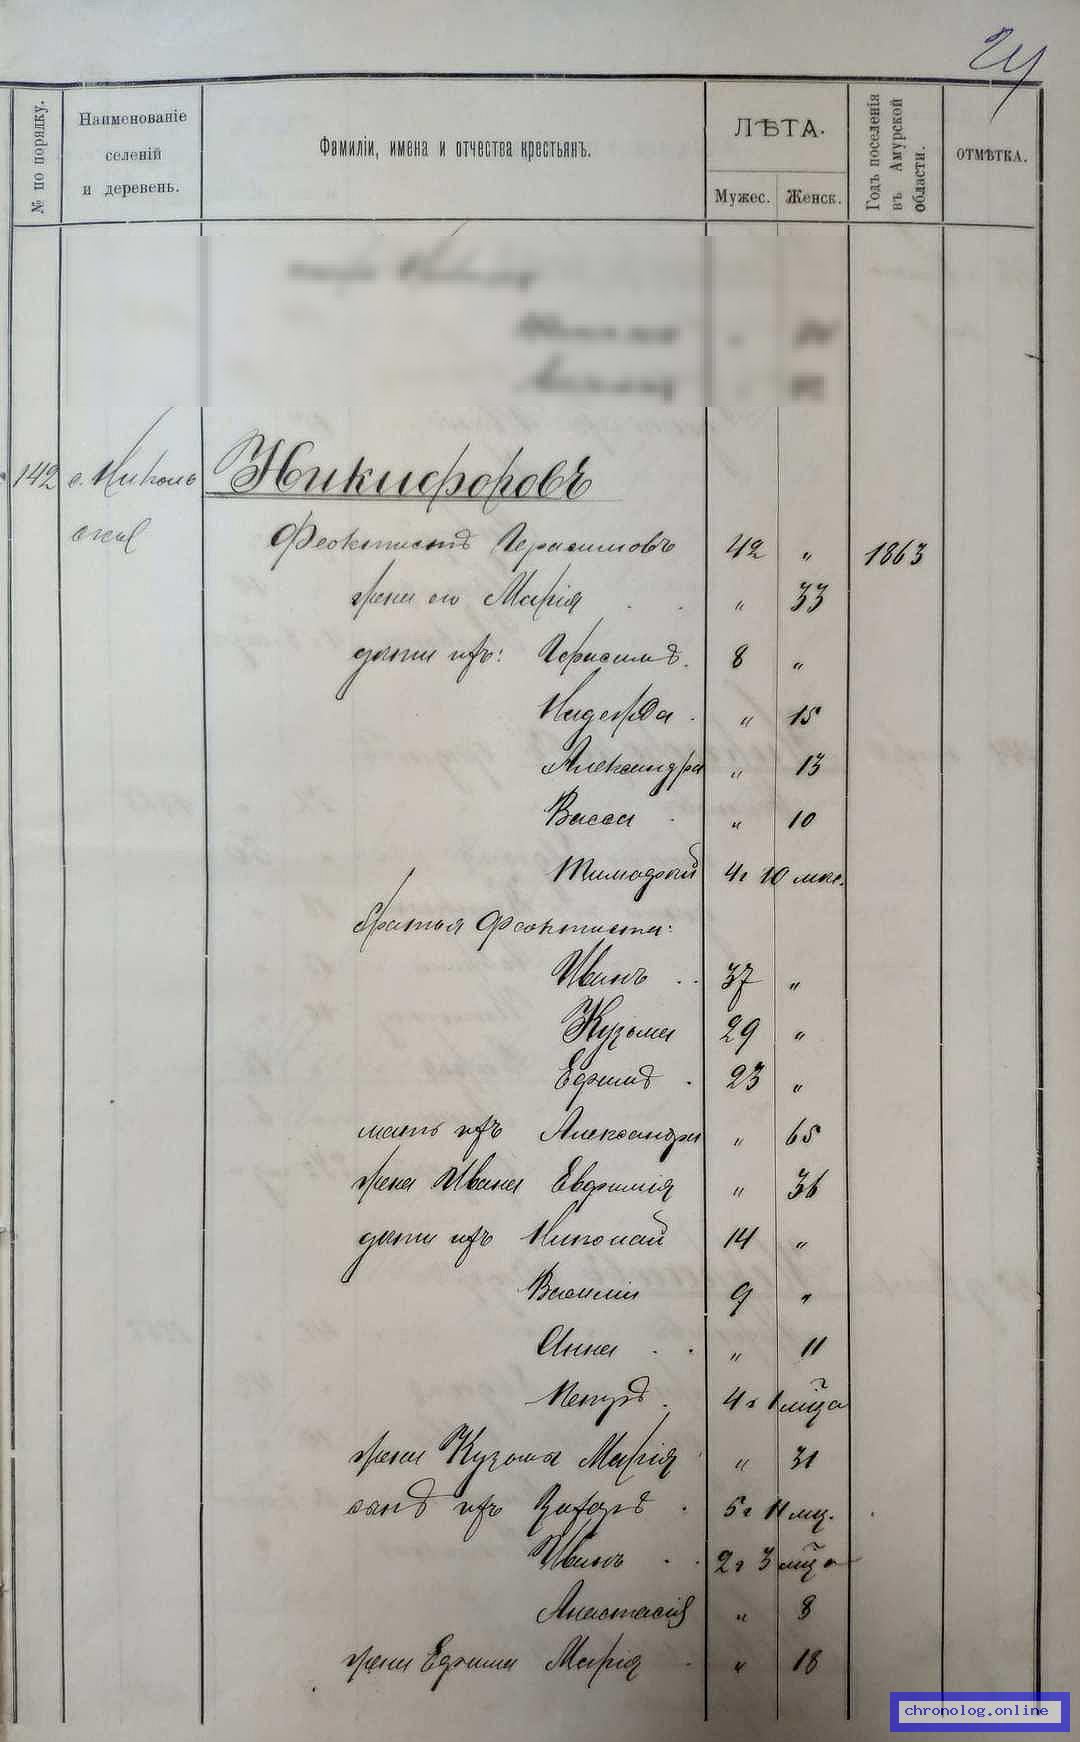 24
№ по порядку.
Наименованіе
селеній
и деревень.
Фамиліи, имена и отчества крестьянъ.
ЛѢТА.
Мужес. Женск.
Годъ поселенія
въ Амурской
области.
ОТМѢТКА.
142 с. Николь Никифоровъ
ское
Феоктистъ Герасимовъ 42 „ 1863
жена его Марія . . „ 33
дѣти ихъ: Герасимъ. 8 „
Надежда . „ 15
Александра „ 13
Васса . „ 10
Тимофей 4 г 10 мѣс.
братья Феоктиста:
Иванъ . . 37 „
Кузьма 29 „
Ефимъ . 23 „
мать ихъ Александра „ 65
жена Ивана Евфимія „ 36
дѣти ихъ Николай 14 „
Василій 9 „
Анна . . „ 11
Петръ . 4 г 1 мѣца
жена Кузьмы Марія „ 31
сынъ ихъ Захаръ . 5 г 11 мц.
Иванъ . . 2 г 3 мѣца
Анастасія „ 8
жена Ефима Марія . „ 18
chronolog.online